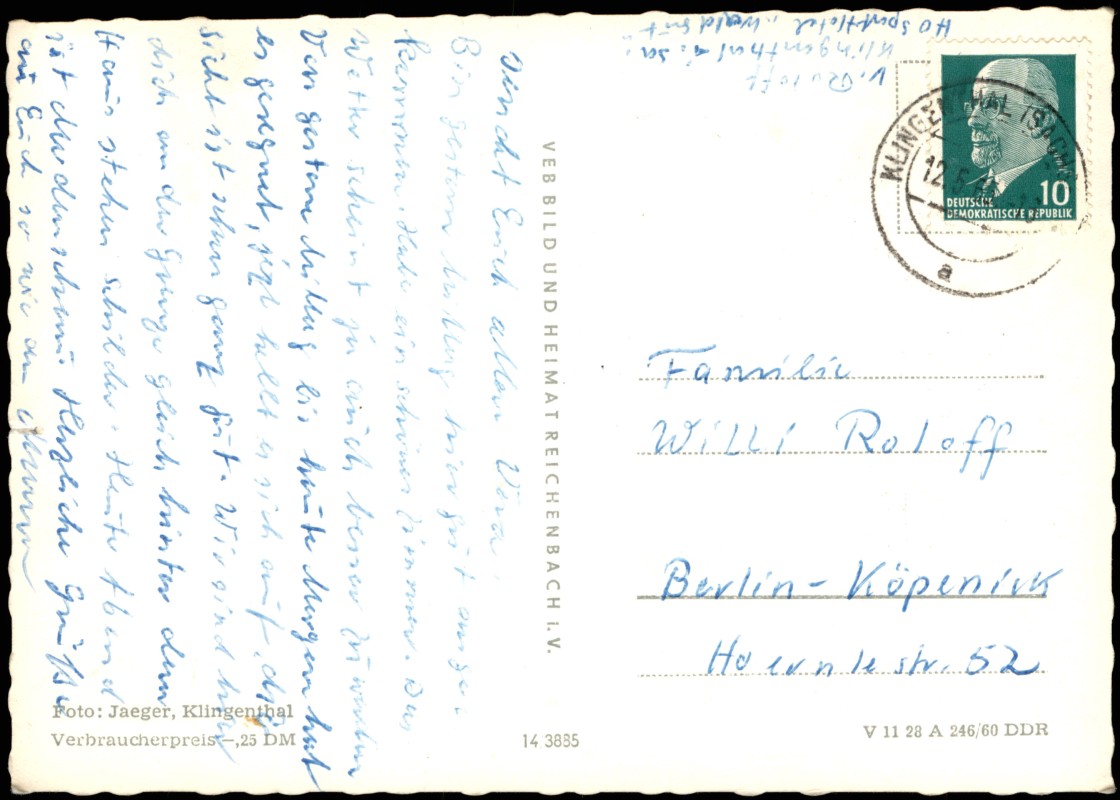 V. Roloff
Klingenthal i. Sa.
HO Sporthotel
KLINGENTHAL (SACHS)
12.5.6
a
10
DEUTSCHE
DEMOKRATISCHE REPUBLIK
Euch allen
Bin gestern Mittag hier gut ange-
kommen. Habe ein schönes Zimmer. Das
Wetter scheint ja auch besser zu werden
Von gestern Mittag bis heute Morgen hat
es geregnet, jezt hellt es sich auf, die
Sicht ist schon ganz gut. Wir sind hier
dicht an der Grenze gleich hinter dem
Haus stehen Schilder. Heute Abend
ist Herzliche Grüße
an Euch so wie an
VEB BILD UND HEIMAT REICHENBACH i. V.
Familie
Willi Roloff
Berlin-Köpenick
Hoernlestr. 52
Foto: Jaeger, Klingenthal
Verbraucherpreis –,25 DM
14 3885
V 11 28 A 246/60 DDR